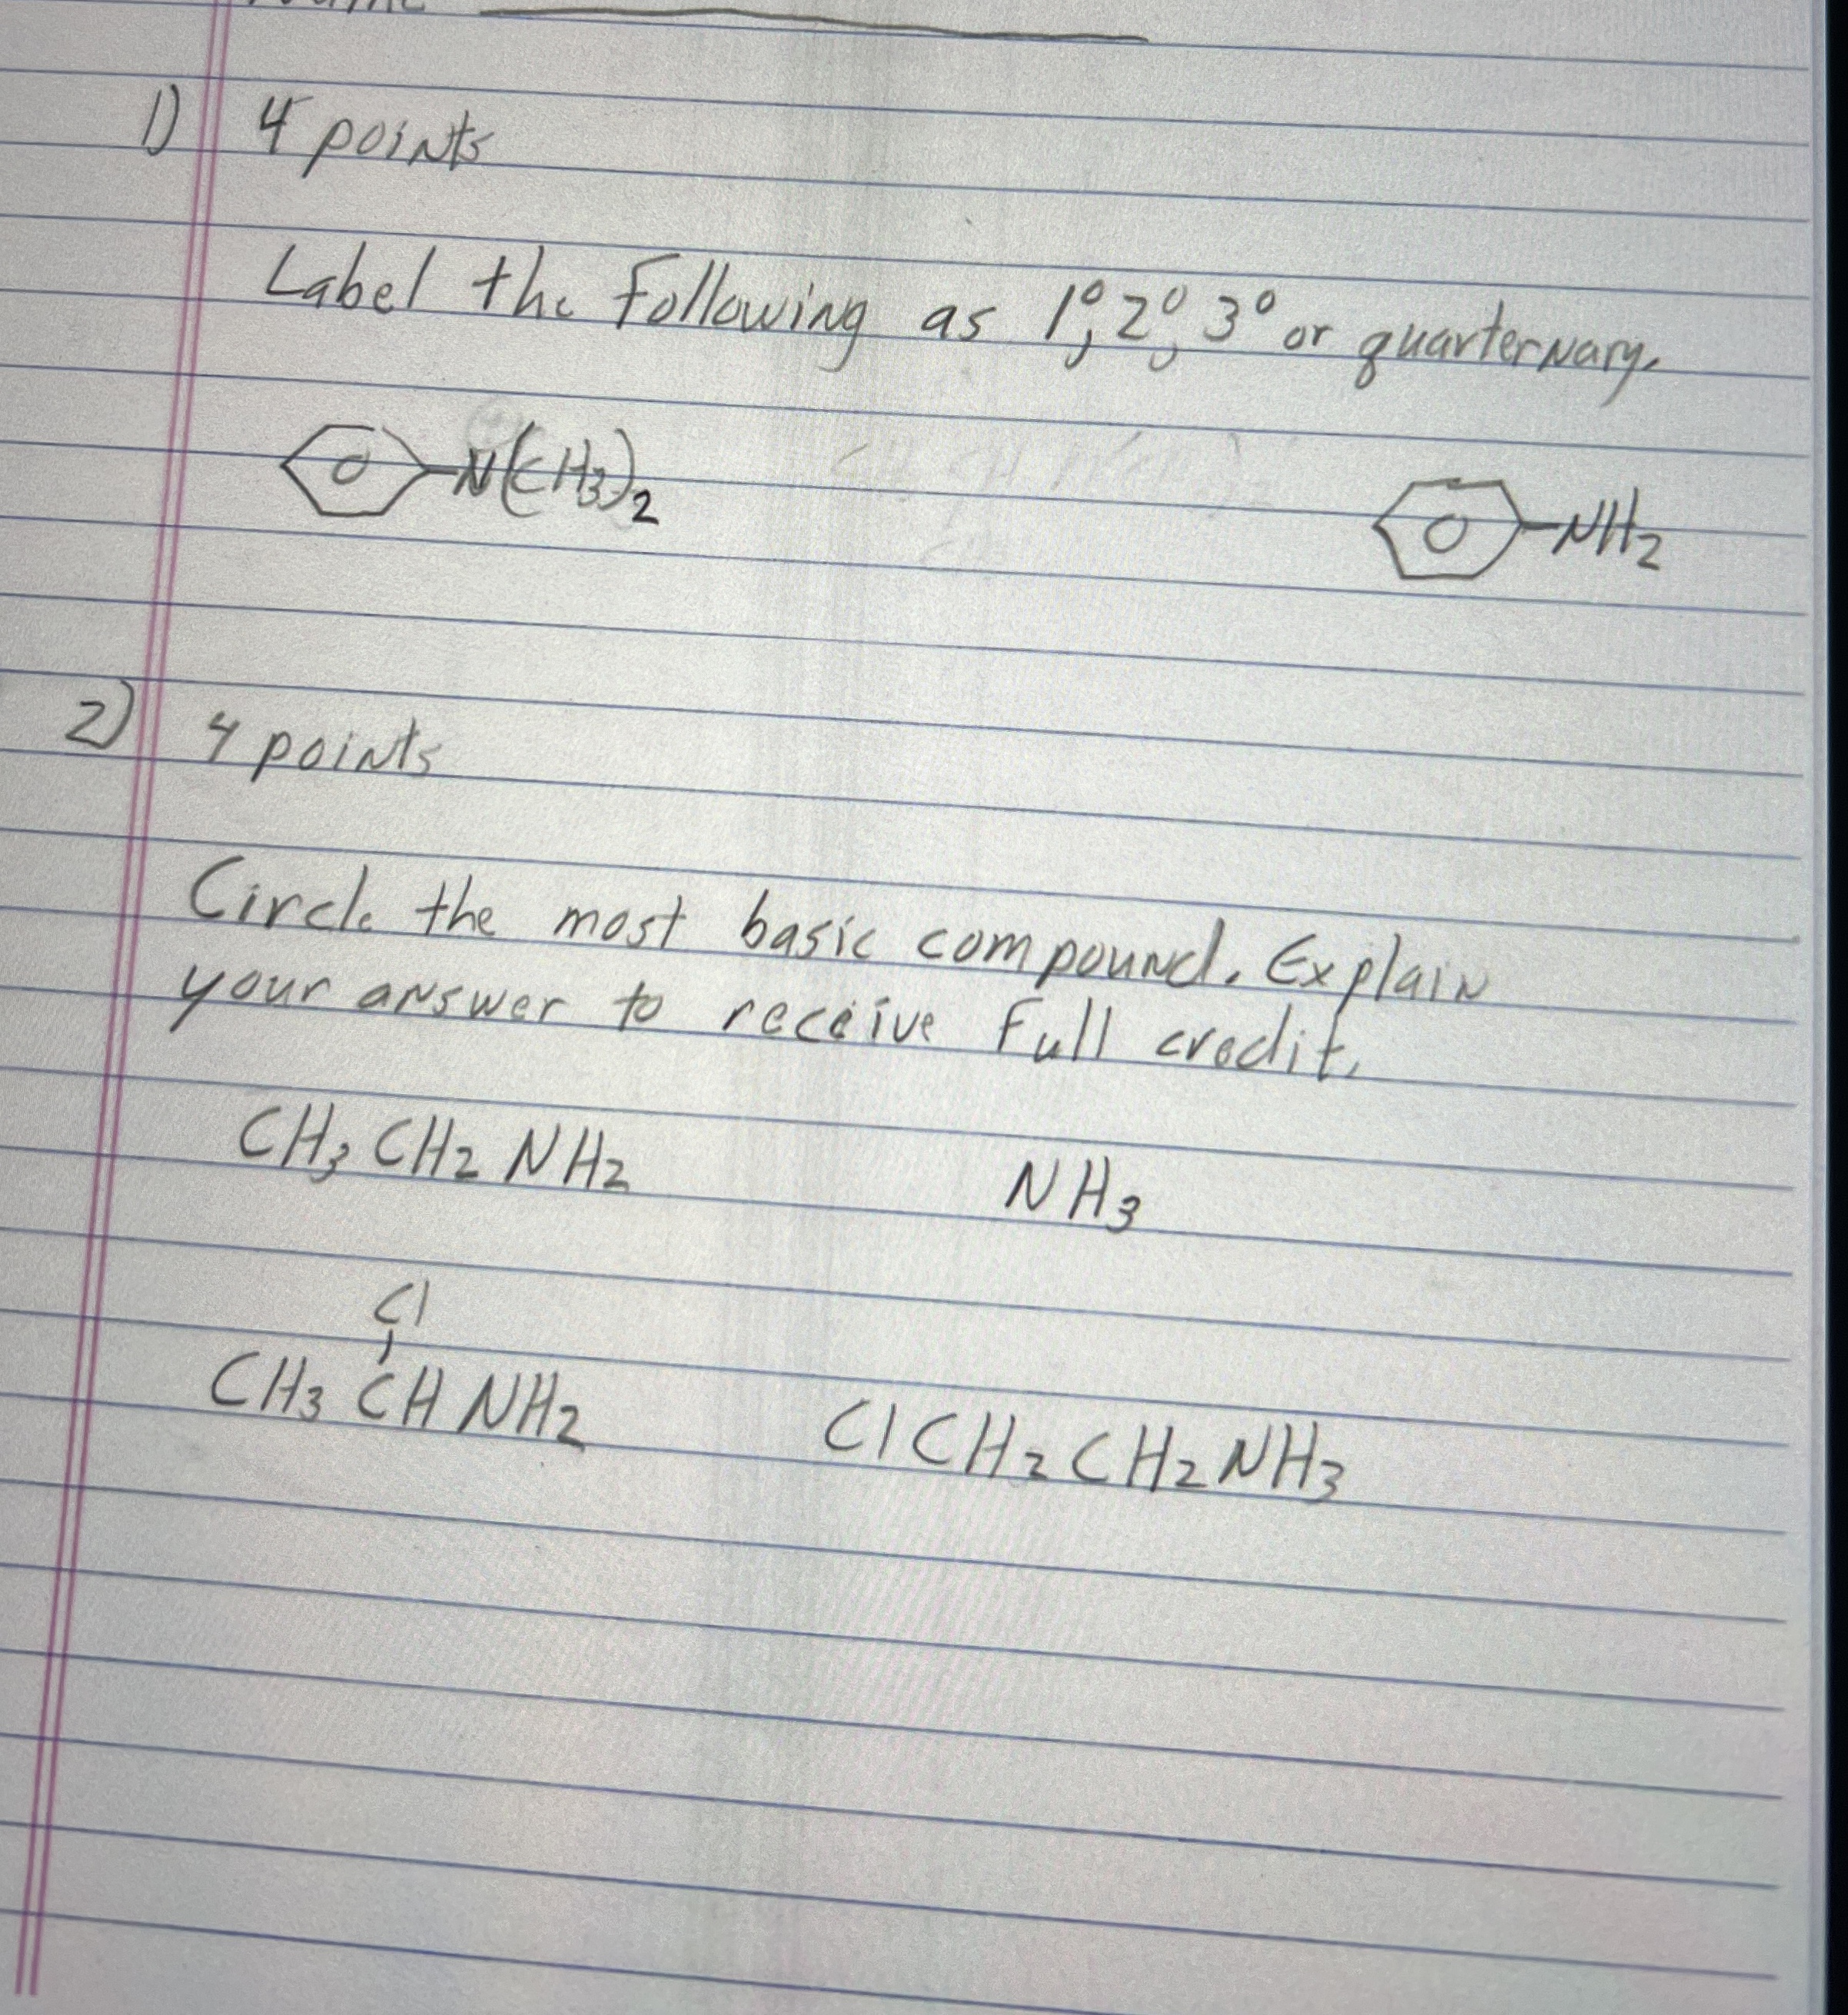 1) 4 points
Label the following as 1°, 2°, 3° or quarternary.
N(CH3)2 NH2
2) 4 points
Circle the most basic compound. Explain
your answer to receive full credit.
CH3 CH2 NH2 NH3
Cl
CH3 CH NH2 ClCH2CH2NH3